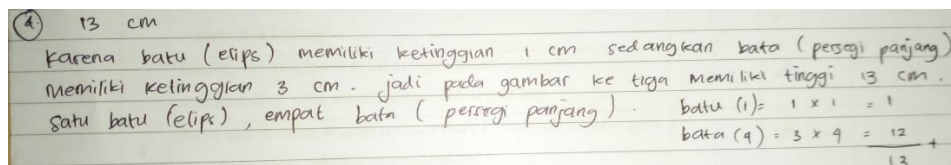 4. 13 cm
Karena batu (elips) memiliki ketinggian 1 cm sedangkan bata (persegi panjang)
memiliki ketinggian 3 cm. jadi pada gambar ke tiga memiliki tinggi 13 cm.
Satu batu (elips), empat bata (persegi panjang). batu (1) = 1 x 1 = 1
bata (4) = 3 x 4 = 12 +
13